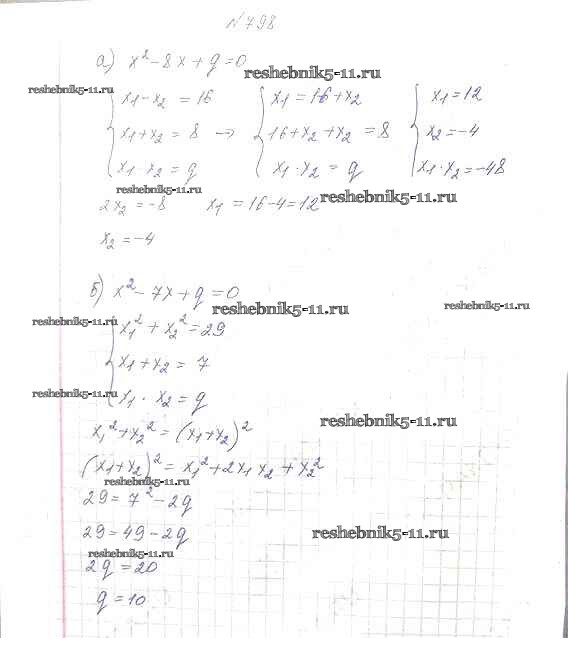 №798
а) x²-8x+g=0
reshebnik5-11.ru
reshebnik5-11.ru
{ x1-x2 = 16 { x1=16+x2 { x1=12
x1+x2 = 8 → 16+x2+x2 = 8 x2=-4
x1 x2 = g x1·x2 = g x1·x2=-48
reshebnik5-11.ru
reshebnik5-11.ru
2x2 = -8 x1 = 16-4=12
x2 = -4
б) x²-7x+g=0
reshebnik5-11.ru
reshebnik5-11.ru
reshebnik5-11.ru
{ x1²+x2²=29
x1+x2 = 7
x1·x2 = g
reshebnik5-11.ru
reshebnik5-11.ru
x1²+x2² = (x1+x2)²
(x1+x2)² = x1²+2x1x2+x2²
reshebnik5-11.ru
29 = 7²-2g
29=49-2g
reshebnik5-11.ru
reshebnik5-11.ru
2g=20
g=10